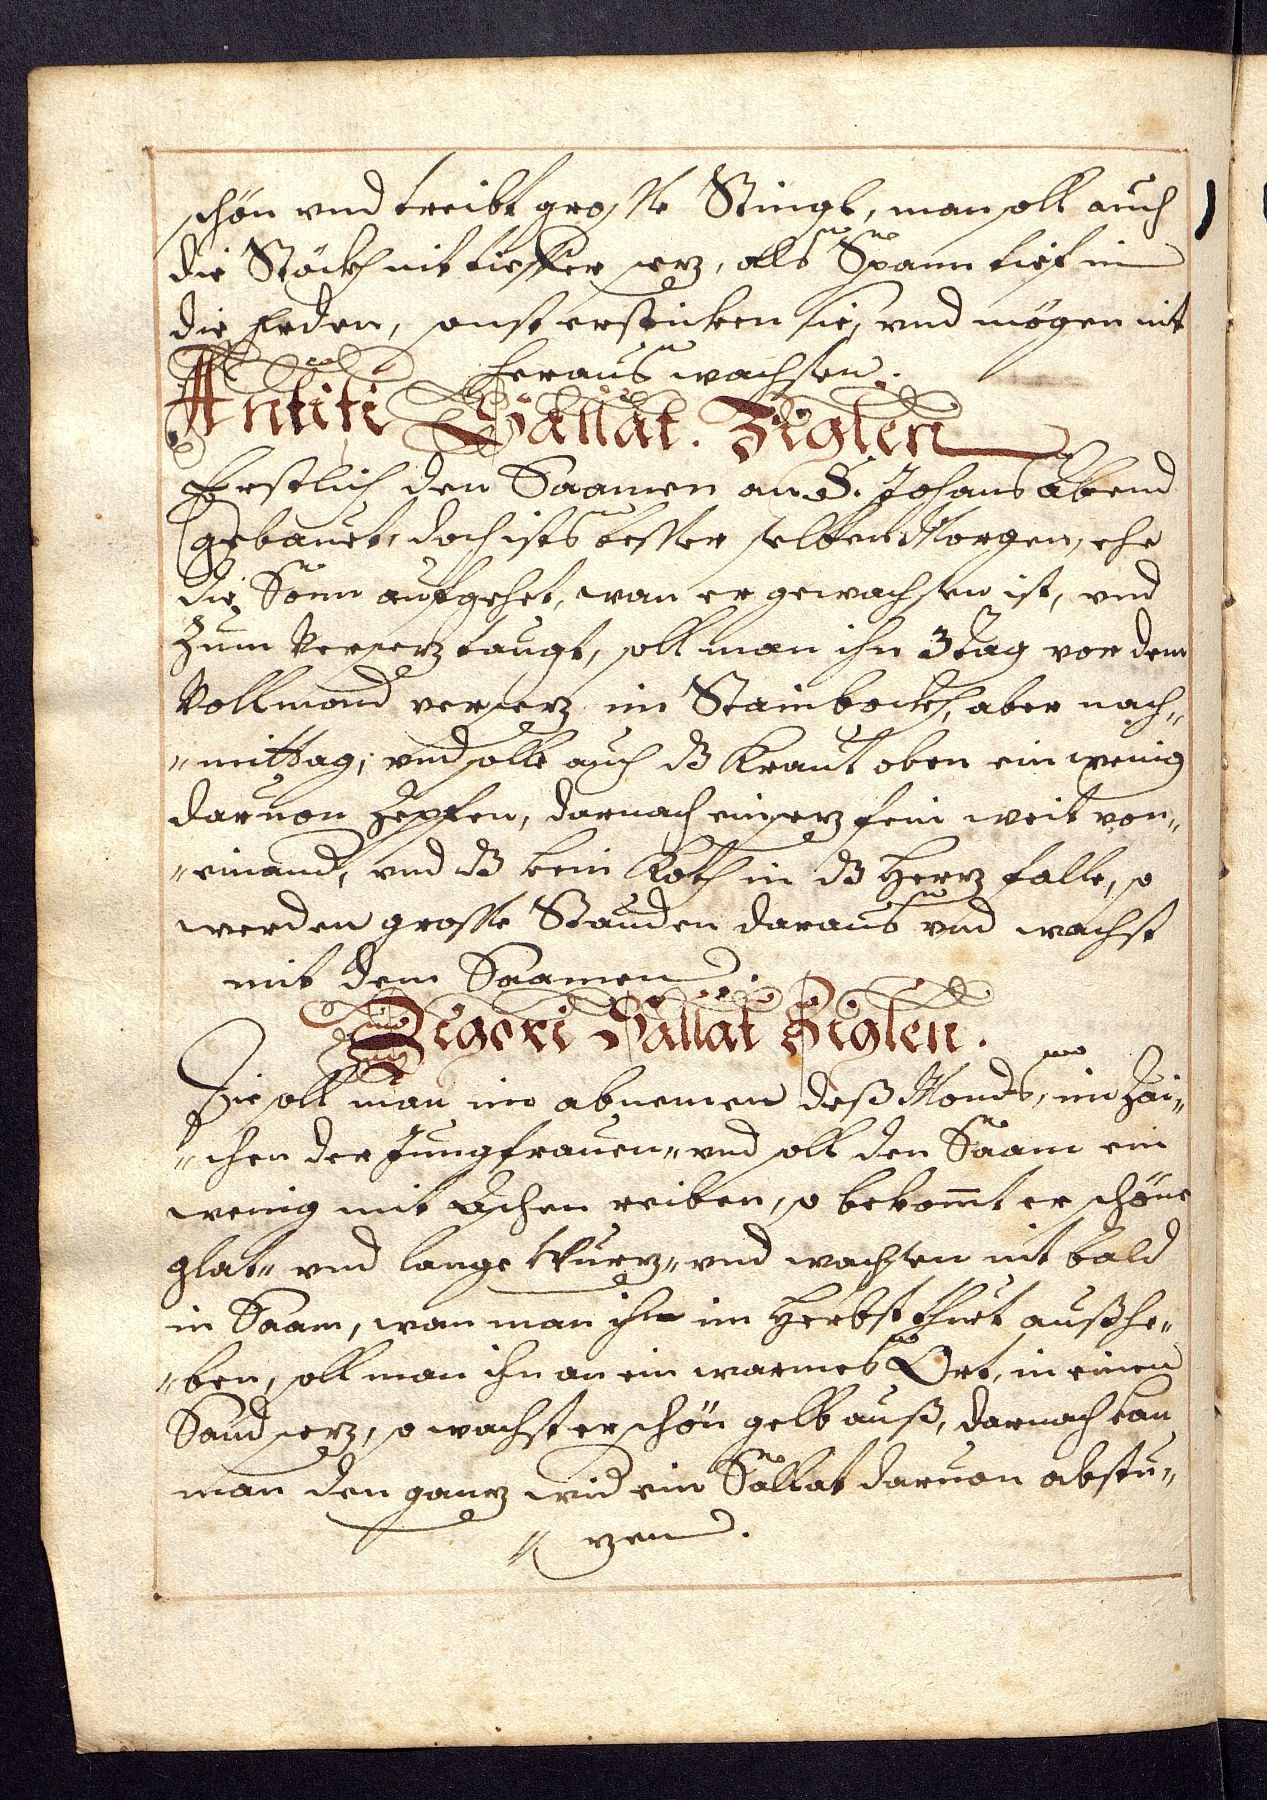 schön vnd treibt grosse Stingl, man soll auch
die Stöckh nit tieffer sezen, alls Spann tief in
die Erden, sonst ersticken sie, vnd mögen nit
heraus wachsen.
Antiti Sallat. Ziglen
Erstlich den Saamen an S. Johans Abend
gebauet, doch ists besser selben Morgen, ehe
die Sonn aufgehet, wan er gewachsen ist, vnd
zum versezen taugt, soll man ihn 3 tag vor dem
Vollmond versezen im Stainbockh, aber nach„
„mittag, vnd solle auch dz Kraut oben ein wenig
daruon zepfen, darnach einsezen fein weit von„
„einand, vnd dz kein Koth in dz Herz falle, so
werden grosse Stauden daraus vnd wachst
mit dem Saamen.
Zigori Sallat Ziglen.
Die soll man im abnemen deß Monds, im Zai„
„chen der Jungfrauen„ vnd soll den Saam ein
wenig mit Aschen reiben, so bekomt er schöne
glat„ vnd lange Wurz„ vnd wachsen nit bald
in Saam, wan man ihn im Herbst thuet außhe„
„ben, soll man ihn an ein warmes Ort, in einen
Sand sezen, so wachst er schön gelb auß, darnach kan
man den ganzen wid ein Sallat daruon abstu„
„zen.